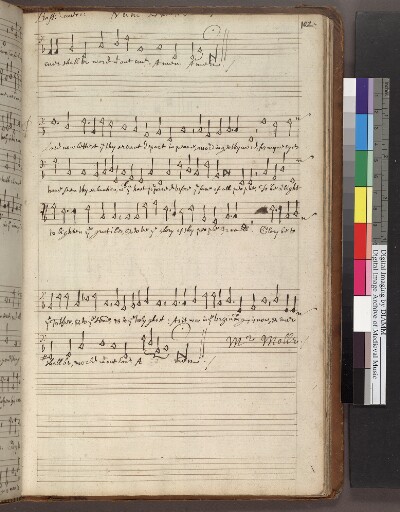 102.
ever shall be world wthout end. Amen Amen
Lord now lettest yu thy servant depart in peace, according to thy word. for mine eyes
have seen thy salvation, wch yu hast prepared before ye face of all people. To be a light
to lighten ye gentiles, & to be ye glory of thy people Israell. Glory be to
ye father, & to ye sonne & to ye holy ghost: As it was in ye beginning, is now, & ever
shall be, world wthout end. A men.
Mr Molle.
Digital Imaging by DIAMM
Digital Image Archive of Medieval Music